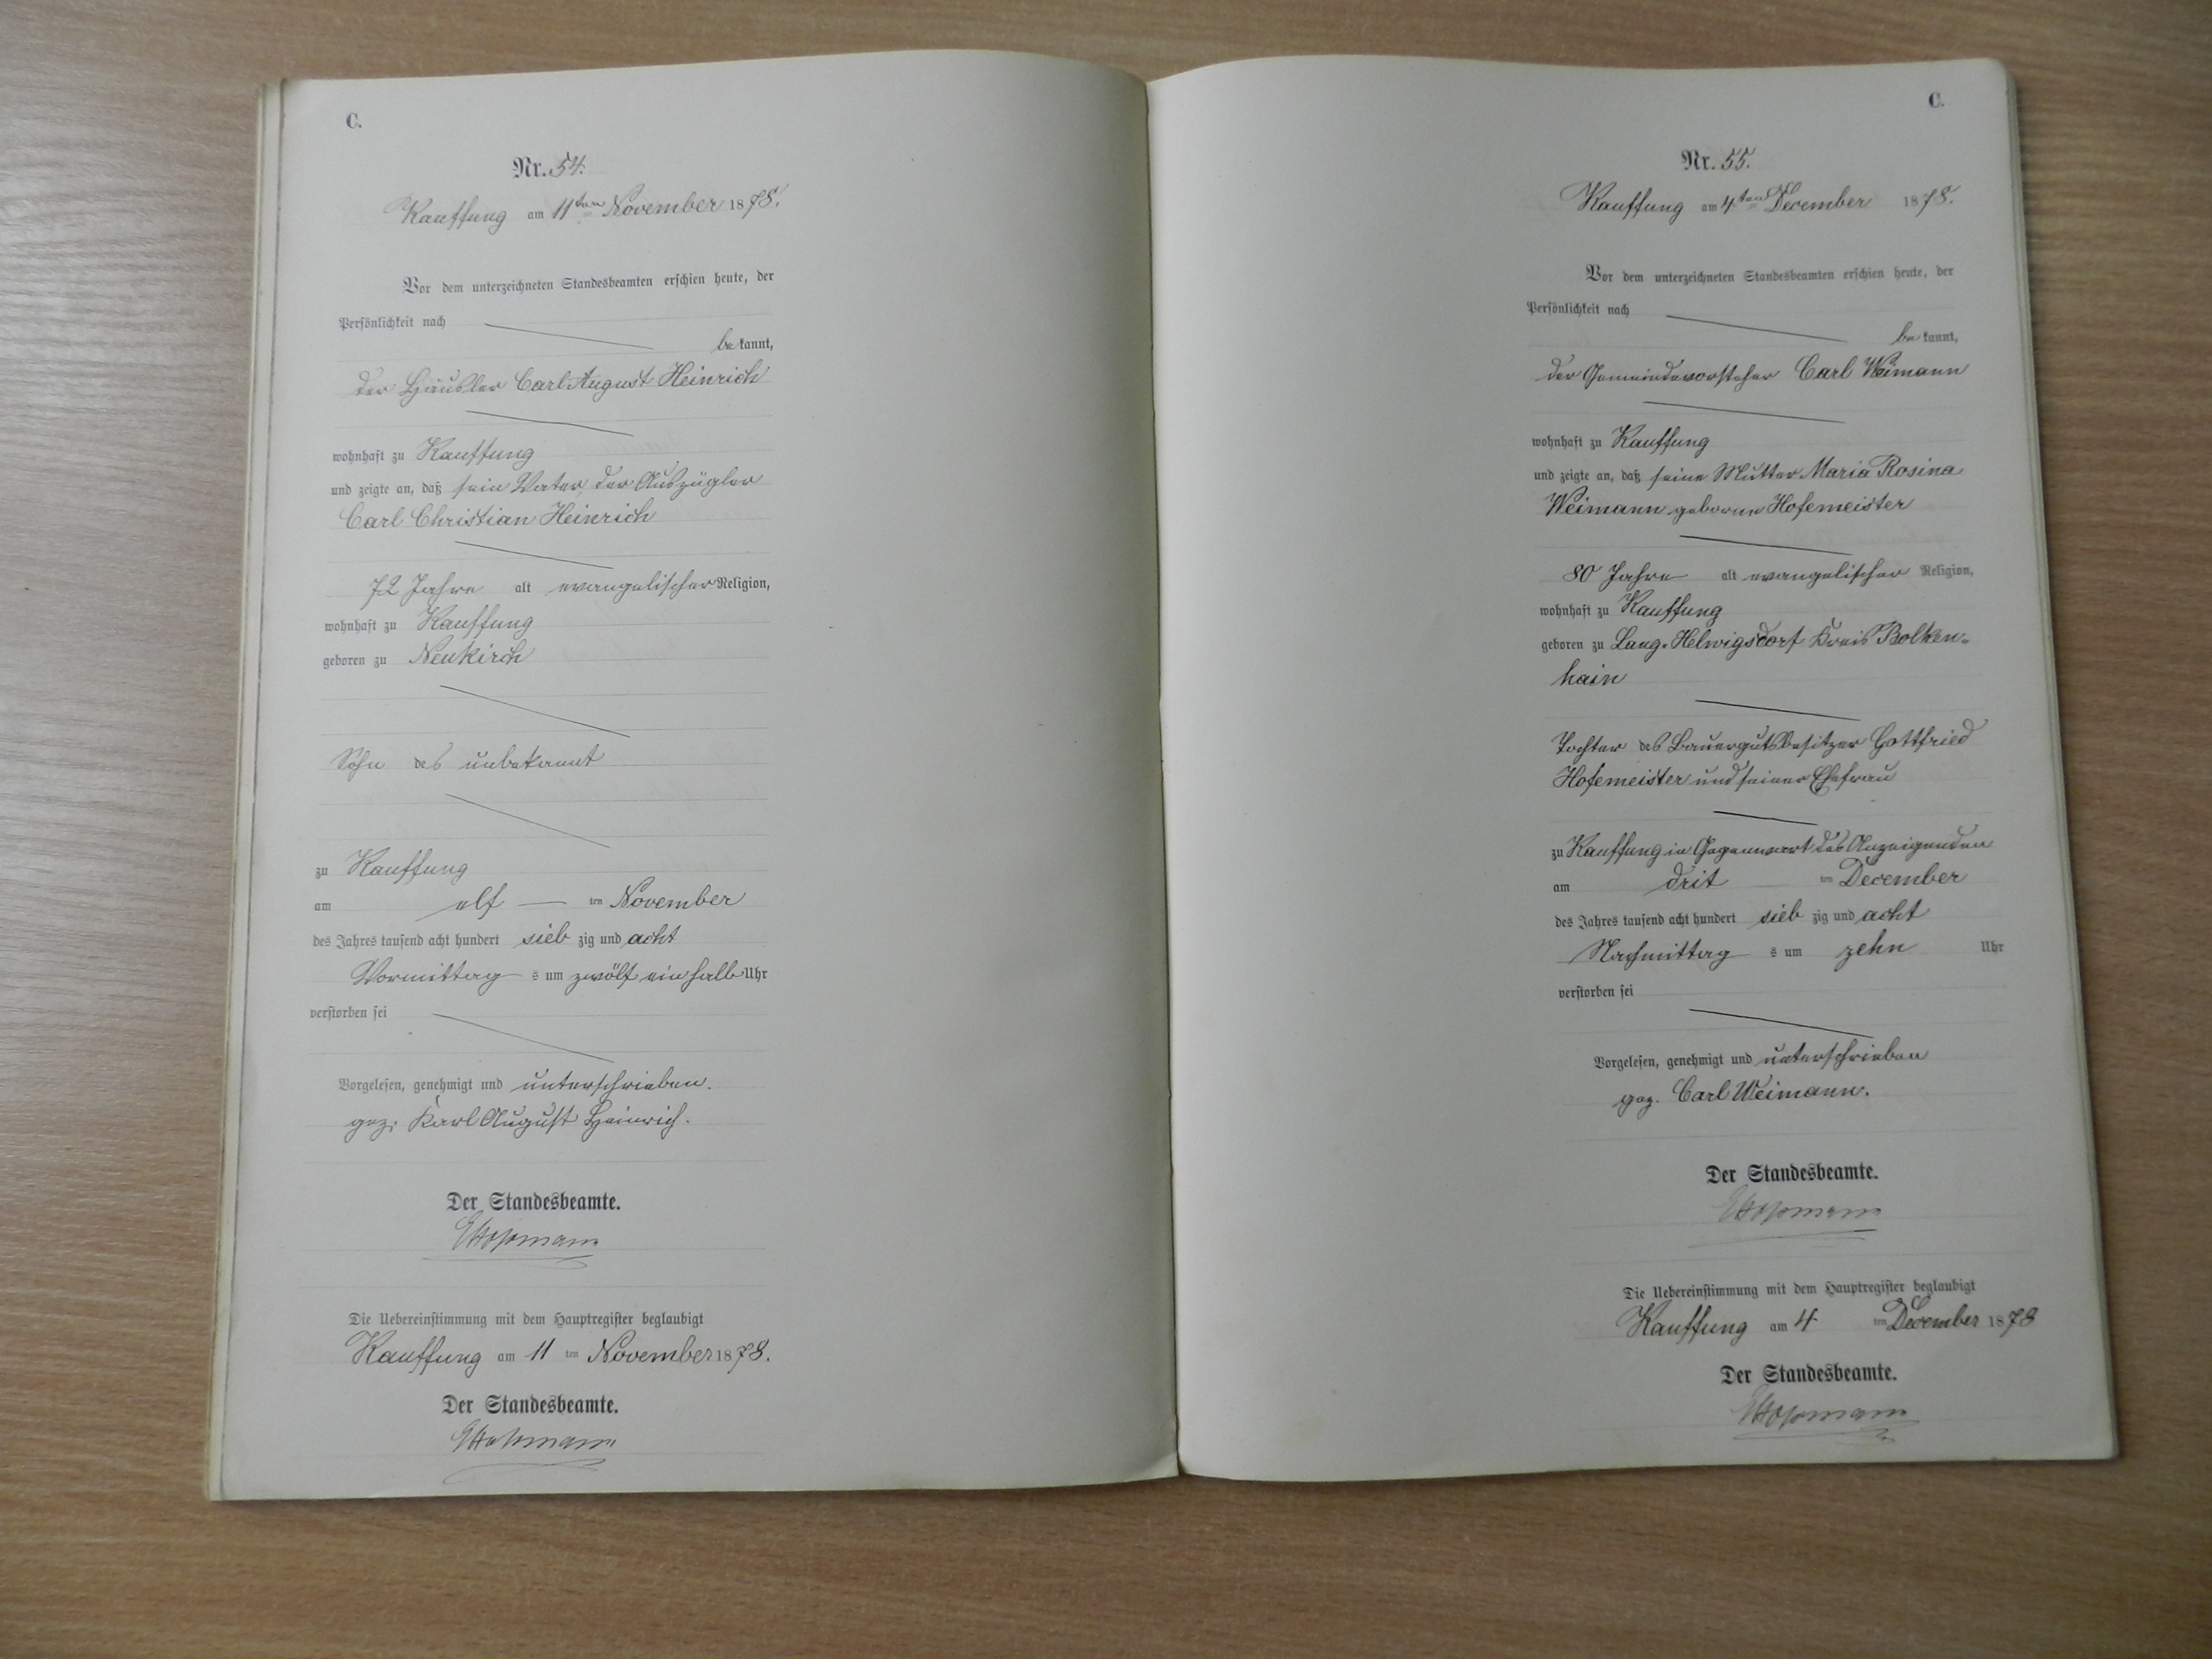 C.
Nr. 54.
Kauffung am 11ten November 1878.
Vor dem unterzeichneten Standesbeamten erschien heute, der
Persönlichkeit nach
bekannt,
der Häusler Carl August Heinrich
wohnhaft zu Kauffung
und zeigte an, daß sein Vater, der Auszügler
Carl Christian Heinrich
72 Jahre alt evangelischer Religion,
wohnhaft zu Kauffung
geboren zu Neukirch
Sohn des unbekannt
zu Kauffung
am elf ten November
des Jahres tausend acht hundert sieb zig und acht
Vormittag s um zwölf ein halb Uhr
verstorben sei
Vorgelesen, genehmigt und unterschrieben.
gez. Karl August Heinrich.
Der Standesbeamte.
Die Uebereinstimmung mit dem Hauptregister beglaubigt
Kauffung am 11 ten November 1878.
Der Standesbeamte.
C.
Nr. 55.
Kauffung am 4ten December 1878.
Vor dem unterzeichneten Standesbeamten erschien heute, der
Persönlichkeit nach
bekannt,
der Gemeindevorsteher Carl Weimann
wohnhaft zu Kauffung
und zeigte an, daß seine Mutter Maria Rosina
Weimann geborne Hofemeister
80 Jahre alt evangelischer Religion,
wohnhaft zu Kauffung
geboren zu Lang-Helwigsdorf Kreis Bolken-
hain
Tochter des Bauergutsbesitzer Gottfried
Hofemeister und seiner Ehefrau
zu Kauffung in Gegenwart des Anzeigenden
am drit ten December
des Jahres tausend acht hundert sieb zig und acht
Nachmittag s um zehn Uhr
verstorben sei
Vorgelesen, genehmigt und unterschrieben
gez. Carl Weimann.
Der Standesbeamte.
Die Uebereinstimmung mit dem Hauptregister beglaubigt
Kauffung am 4 ten December 1878
Der Standesbeamte.